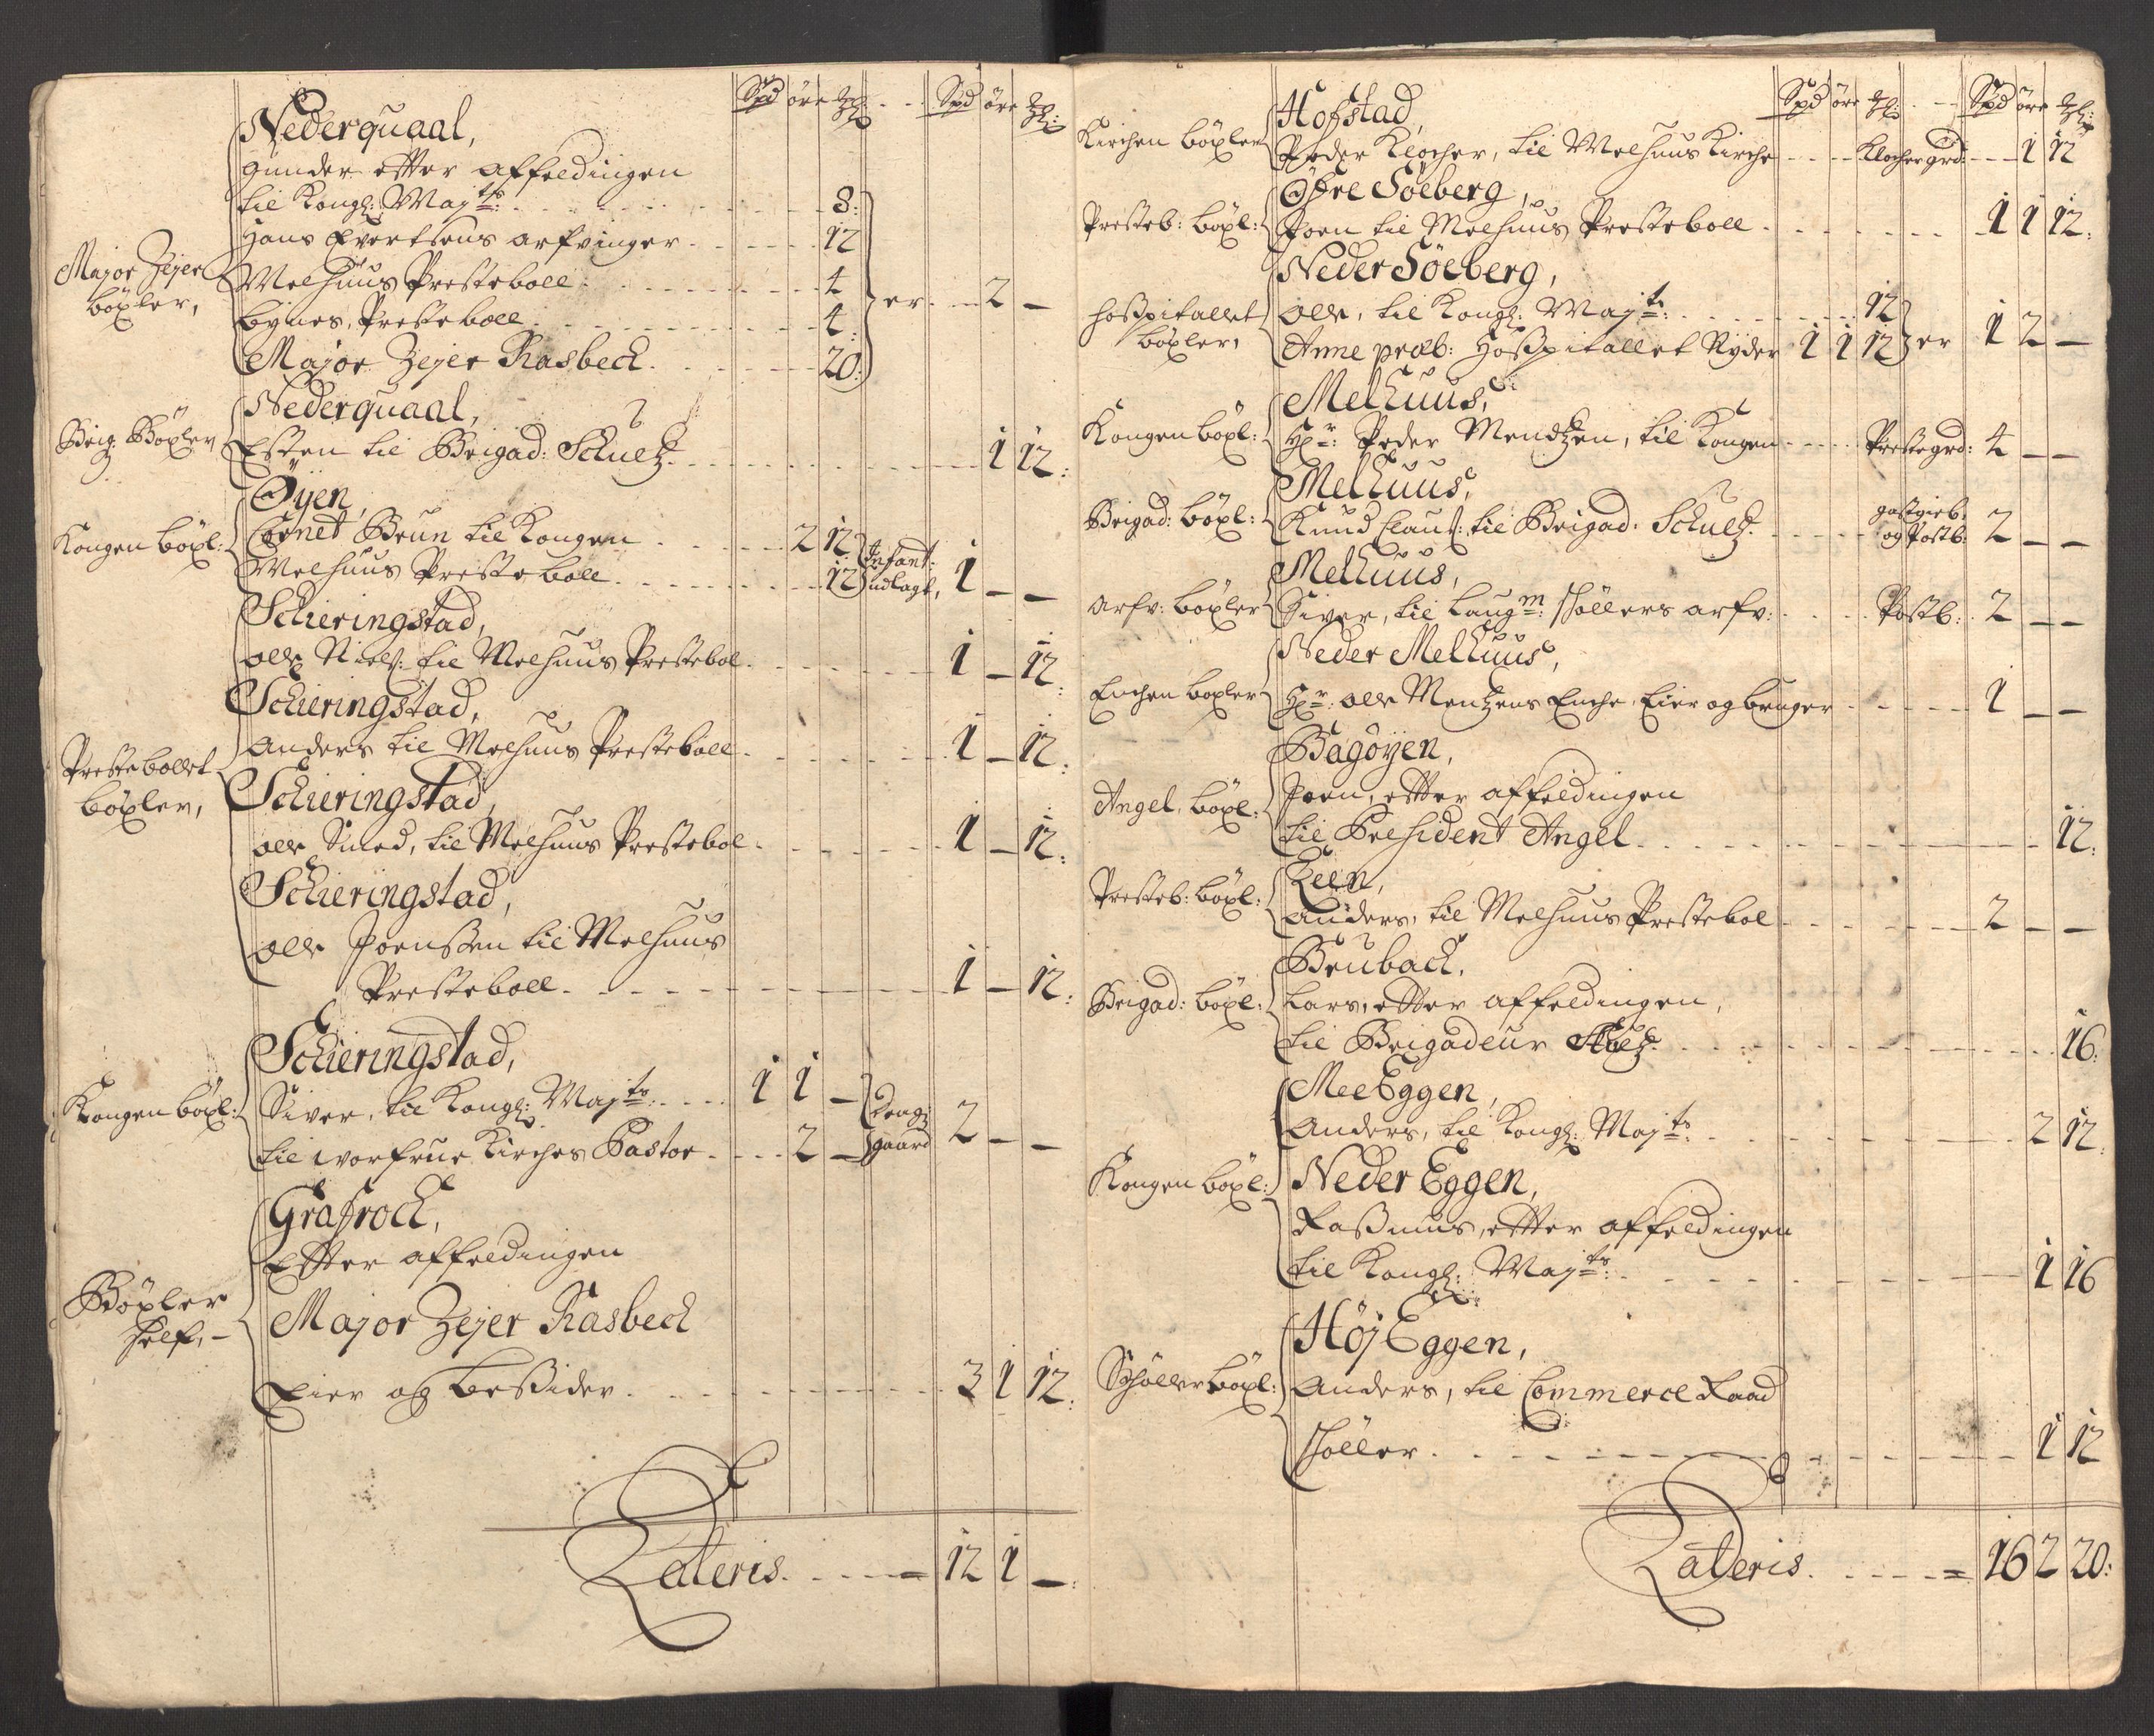 Spd øre
Spd øre
Nederquaal,
gunder etter affeldingen
til Kongl: Majts: 8:
Hans Evertsens arfvinger 12
Major Zejer
böxler,
Melhuus Presteboll 4
er 2 –
bynes, Presteboll 4
Major Zejer Rasbech 20:
Nederquaal,
Brig: Böxler
Esten til Brigad: Schultz 1 12:
Øyen,
Kongen böxl:
Cornet Brun til Kongen 2 12
Infant:
Melhuus Presteboll 12
udlagt, 1 – –
Schieringstad,
olle Niels: til Melhuus Prestebol 1 – 12:
Schieringstad,
Prestebollet
böxler,
anders til Melhuus Presteboll 1 – 12:
Schieringstad,
olle Smed, til Melhuus Prestebol 1 – 12:
Schieringstad,
olle Joenssen til Melhuus
Presteboll 1 – 12:
Schieringstad,
Kongen böxl:
Siver, til Kongl: Majts: 1 1 –
gaard 2 – –
til worfrue Kirches Pastor 2 –
Grafroch,
Etter affeldingen
Böxler
self, –
Major Zejer Rasbech
Eier og besider 3 1 12:
Lateris = 12 1 –:
Spd øre
Spd øre
Hofstad,
Kirchen böxler
Peder Klocher, til Melhuus Kirche Klocher grd: 1 12
Øfre Söeberg,
Presteb: böxl:
Joen til Melhuus Presteboll 1 1 12:
Neder Söeberg,
Hosspitallet
böxler,
olle, til Kongl: Majts: 12
Anne præb: Hosspitallet Nyder 1 1 12 er 1 2 –
Melhuus,
Kongen böxl:
Hr: Peder Mendtzen, til Kongen Prestegrd: 4 – –
Melhuus,
Brigad: böxl:
Knud Claus: til Brigad: Schultz
gastgieb:
og Postb: 2 – –
Melhuus,
Arfv: böxler
Siver, til Laugm: Schöllers arfv: Postb: 2 – –
Neder Melhuus,
Enchen boxler
Hr: olle Mentzens Enche, Eier og bruger 1 – –
Bagöyen,
Angel, böxl:
Joen, etter affeldingen
til President Angel 12:
Leen,
Presteb: böxl:
Anders, til Melhuus Prestebol 2 – –
Brubach,
Brigad: böxl:
Lars, etter affeldingen,
til Brigadeur Schultz 16:
Mee Eggen,
Anders, til Kongl: Majts: 2 12:
Kongen böxl:
Neder Eggen,
Rassmus, etter affeldingen
til Kongl: Majts: 1 16
Höj Eggen,
Schöller böxl:
Anders, til Commerce Raad
Schöller 1 12
Lateris = 16 2 20: